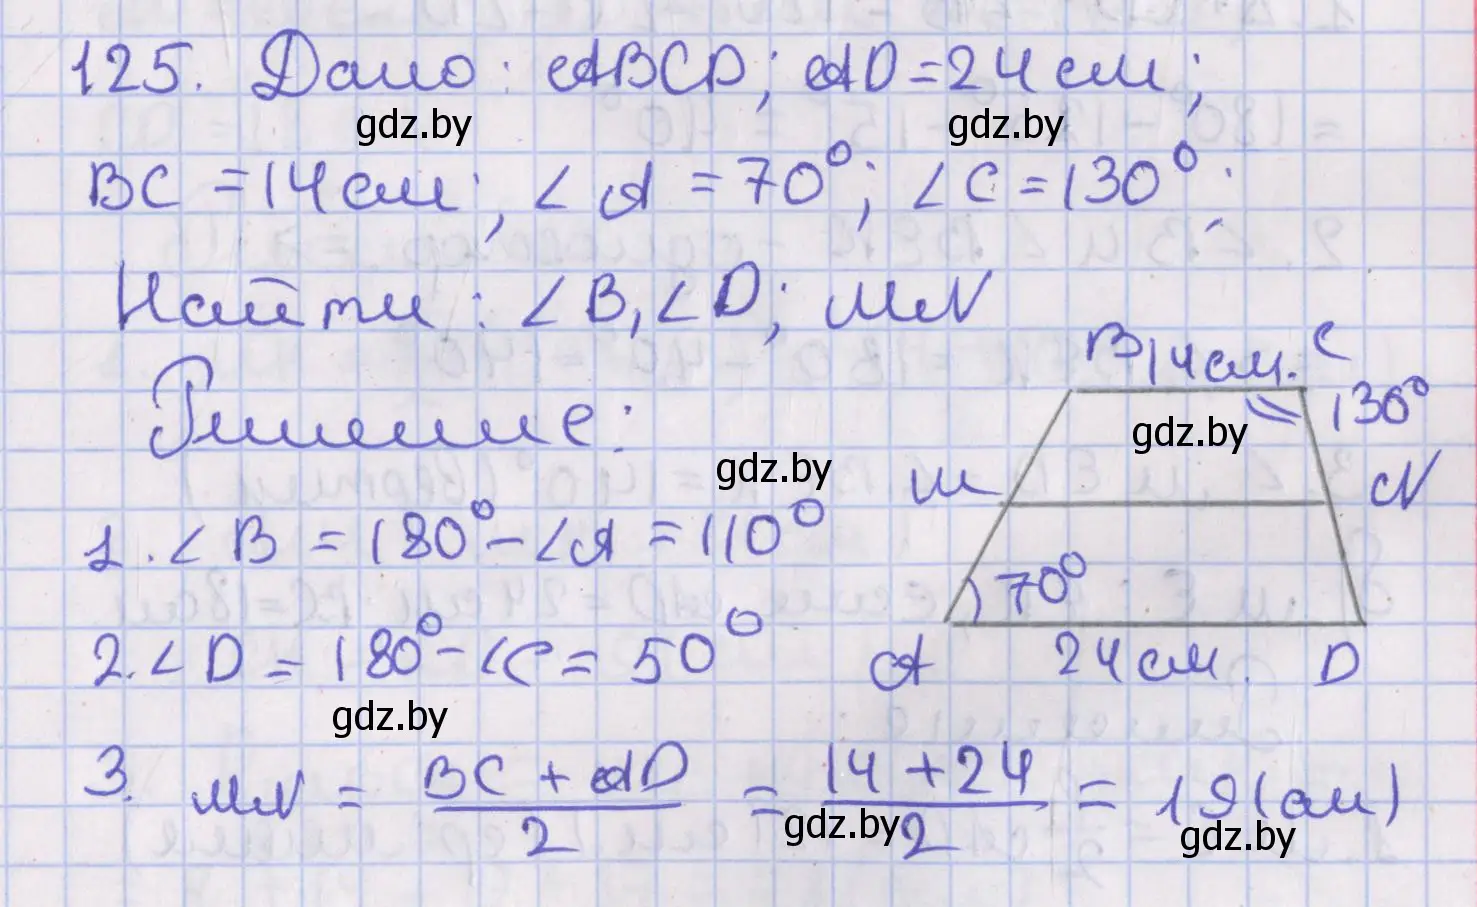 125. Дано: ABCD; AD = 24 см;
gdz.by gdz.by
BC = 14 см; ∠A = 70°; ∠C = 130°;
Найти: ∠B, ∠D; MN
Решение:
B 14 см. C
gdz.by 130°
gdz.by
M N
1. ∠B = 180° - ∠A = 110°
70°
2. ∠D = 180° - ∠C = 50°
A 24 см. D
gdz.by
3. MN = (BC + AD)/2 = (14 + 24)/2 = 19 (см)
gdz.by gdz.by